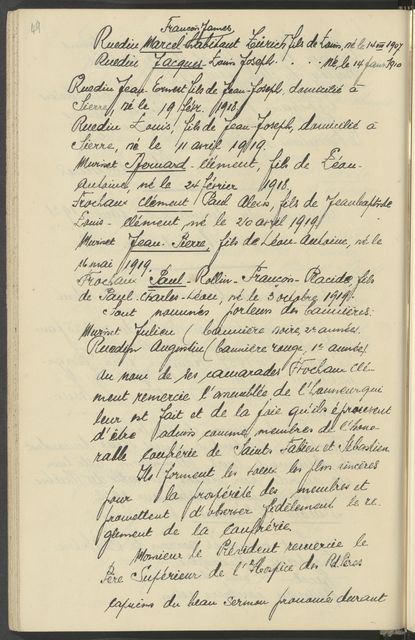 49
François James
Ruedin Marcel habitant Zürich fils de Louis, né le 14 VII 1907
Ruedin Jacques-Louis Joseph . . . né, le 14 janv. 1910
Ruedin Jean-Ernest fils de Jean-Joseph, domicilié à
Sierre, né le 19 févr. 1918.
Ruedin Louis, fils de Jean-Joseph, domicilié à
Sierre, né le 11 avril 1919.
Murinet Armand-Clément, fils de Léon-
Antoine, né le 24 février 1918.
Frochaux Clément Paul Alexis, fils de Jean baptiste
Louis-Clément, né le 20 avril 1919
Murinet Jean-Pierre, fils de Léon-Antoine, né le
16 mai 1919.
Frochaux Paul-Rollin-François-Placide, fils
de Paul-Charles-Léon, né le 3 octobre 1919.
Sont nommés porteurs des bannières:
Murinet Julien (bannière noire, 2e année.
Ruedin Augustin (bannière rouge, 1e année)
Au nom de ses camarades Frochaux Clé-
ment remercie l'assemblée de l'honneur qui
leur est fait et de la joie qu'ils éprouvent
d'être admis comme membres de l'hono-
rable confrérie de Saints Fabien et Sébastien
Ils forment les voeux les plus sincères
pour la prospérité des membres et
promettent d'observer fidèlement le rè-
glement de la Confrérie.
Monsieur le Président remercie le
Père Supérieur de l'Hospice des Rds Pères
capucins du beau sermon prononcé durant